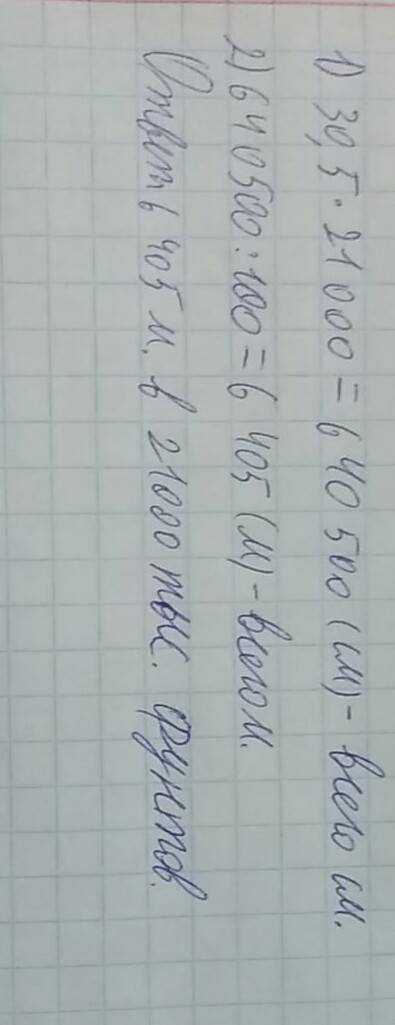 1) 30,5 · 21 000 = 6 40 500 (см) - всего см.
2) 6 40 500 : 100 = 6 405 (м) - всего м.
Ответ 6 405 м. в 21000 тыс. фунтов.